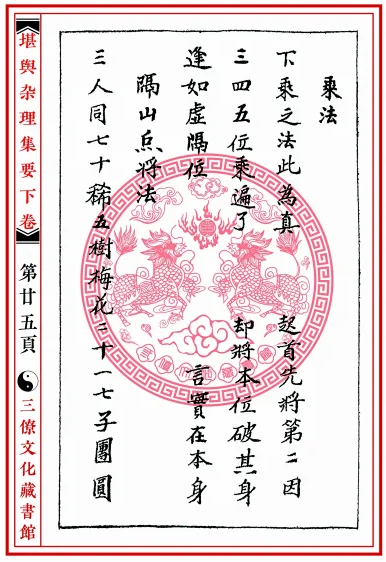 乘法
下乘之法此為真 起首先將第二因
三四五位乘遍了 却將本位破其身
逢如虛隔位 言實在本身
隔山点將法
三人同七十稀五樹梅花二十一七子團圓
堪舆杂理集要下卷
第廿五頁
三僚文化藏書館